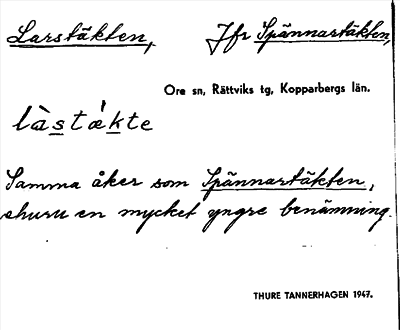 Larstäkten, Jfr Spännartäkten,
Ore sn, Rättviks tg, Kopparbergs län.
làstǽkte
Samma åker som Spännartäkten,
ehuru en mycket yngre benämning.
THURE TANNERHAGEN 1947.